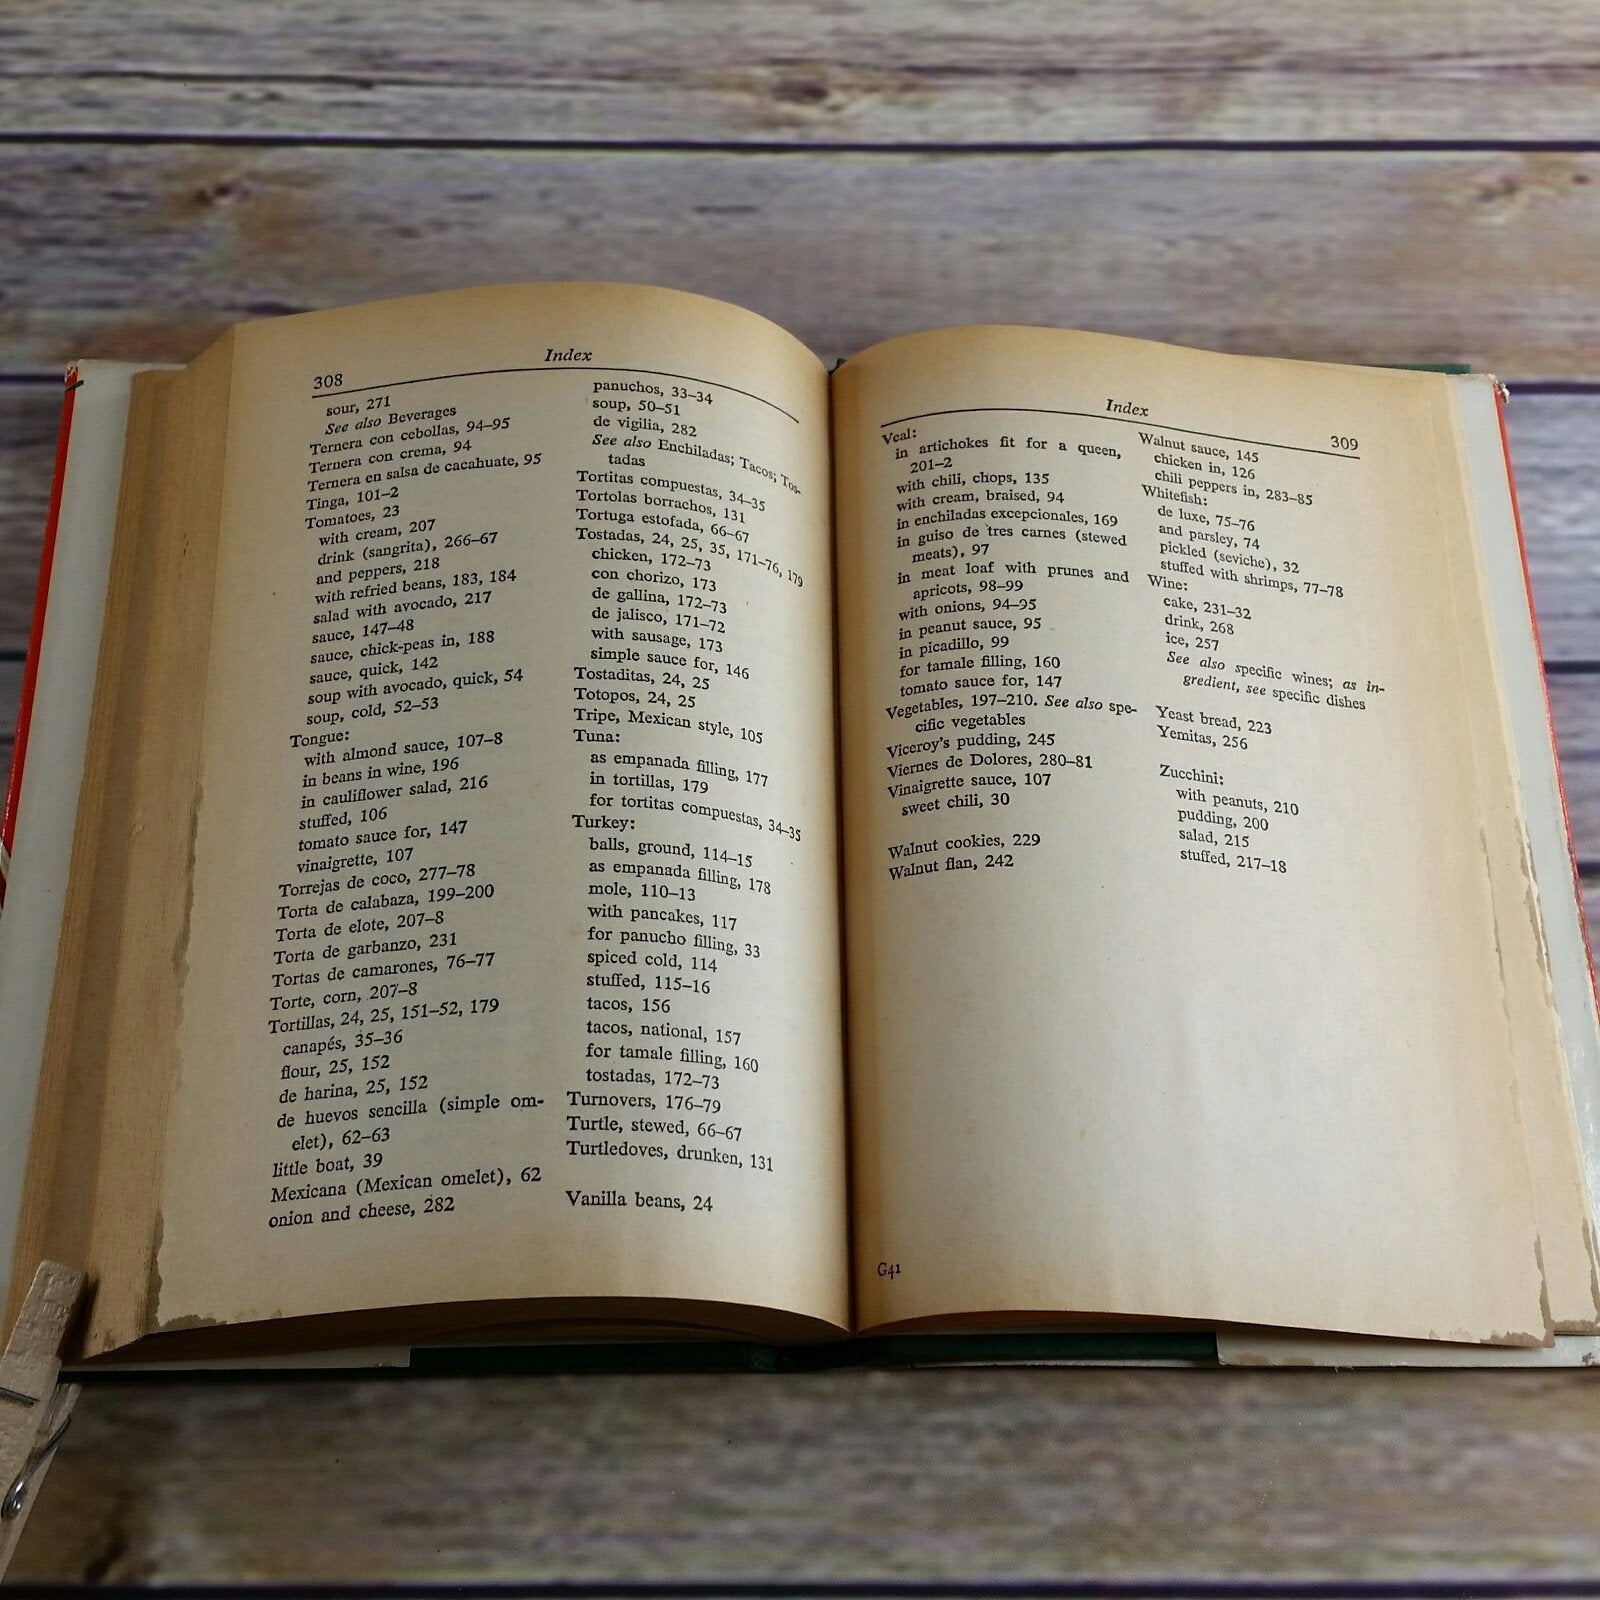 308
Index
sour, 271
See also Beverages
Ternera con cebollas, 94–95
Ternera con crema, 94
Ternera en salsa de cacahuate, 95
Tinga, 101–2
Tomatoes, 23
with cream, 207
drink (sangrita), 266–67
and peppers, 218
with refried beans, 183, 184
salad with avocado, 217
sauce, 147–48
sauce, chick-peas in, 188
sauce, quick, 142
soup with avocado, quick, 54
soup, cold, 52–53
Tongue:
with almond sauce, 107–8
in beans in wine, 196
in cauliflower salad, 216
stuffed, 106
tomato sauce for, 147
vinaigrette, 107
Torrejas de coco, 277–78
Torta de calabaza, 199–200
Torta de elote, 207–8
Torta de garbanzo, 231
Tortas de camarones, 76–77
Torte, corn, 207–8
Tortillas, 24, 25, 151–52, 179
canapés, 35–36
flour, 25, 152
de harina, 25, 152
de huevos sencilla (simple om-
elet), 62–63
little boat, 39
Mexicana (Mexican omelet), 62
onion and cheese, 282
panuchos, 33–34
soup, 50–51
de vigilia, 282
See also Enchiladas; Tacos; Tos-
tadas
Tortitas compuestas, 34–35
Tortolas borrachos, 131
Tortuga estofada, 66–67
Tostadas, 24, 25, 35, 171–76, 179
chicken, 172–73
con chorizo, 173
de gallina, 172–73
de jalisco, 171–72
with sausage, 173
simple sauce for, 146
Tostaditas, 24, 25
Totopos, 24, 25
Tripe, Mexican style, 105
Tuna:
as empanada filling, 177
in tortillas, 179
for tortitas compuestas, 34–35
Turkey:
balls, ground, 114–15
as empanada filling, 178
mole, 110–13
with pancakes, 117
for panucho filling, 33
spiced cold, 114
stuffed, 115–16
tacos, 156
tacos, national, 157
for tamale filling, 160
tostadas, 172–73
Turnovers, 176–79
Turtle, stewed, 66–67
Turtledoves, drunken, 131
Vanilla beans, 24
Index
309
Veal:
in artichokes fit for a queen,
201–2
with chili, chops, 135
with cream, braised, 94
in enchiladas excepcionales, 169
in guiso de tres carnes (stewed
meats), 97
in meat loaf with prunes and
apricots, 98–99
with onions, 94–95
in peanut sauce, 95
in picadillo, 99
for tamale filling, 160
tomato sauce for, 147
Vegetables, 197–210. See also spe-
cific vegetables
Viceroy's pudding, 245
Viernes de Dolores, 280–81
Vinaigrette sauce, 107
sweet chili, 30
Walnut cookies, 229
Walnut flan, 242
Walnut sauce, 145
chicken in, 126
chili peppers in, 283–85
Whitefish:
de luxe, 75–76
and parsley, 74
pickled (seviche), 32
stuffed with shrimps, 77–78
Wine:
cake, 231–32
drink, 268
ice, 257
See also specific wines; as in-
gredient, see specific dishes
Yeast bread, 223
Yemitas, 256
Zucchini:
with peanuts, 210
pudding, 200
salad, 215
stuffed, 217–18
G41